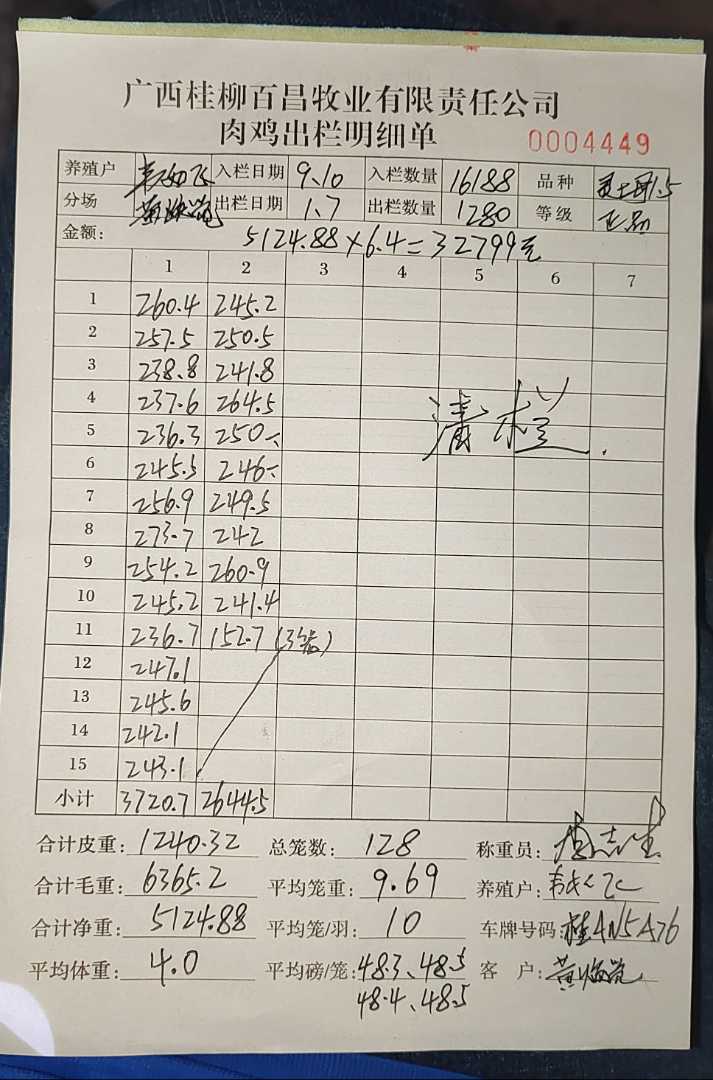 广西桂柳百昌牧业有限责任公司
肉鸡出栏明细单 0004449
养殖户 入栏日期 9.10 入栏数量 16188 品种
分场 出栏日期 1.7 出栏数量 1280 等级 正品
金额: 5124.88×6.4=32799元
1 2 3 4 5 6 7
1 260.4 245.2
2 257.5 250.5
3 238.8 241.8
4 237.6 264.5
5 236.3 250
6 245.5 246
7 256.9 249.5
8 273.7 242
9 254.2 260.9
10 245.2 241.4
11 236.7 152.7 (3笼)
12 247.1
13 245.6
14 242.1
15 243.1
清栏.
小计 3720.7 2644.5
合计皮重: 1240.32 总笼数: 128 称重员:
合计毛重: 6365.2 平均笼重: 9.69 养殖户:
合计净重: 5124.88 平均笼/羽: 10 车牌号码: 桂AN5A76
平均体重: 4.0 平均磅/笼: 48.3、48.5 客户:
48.4、48.5